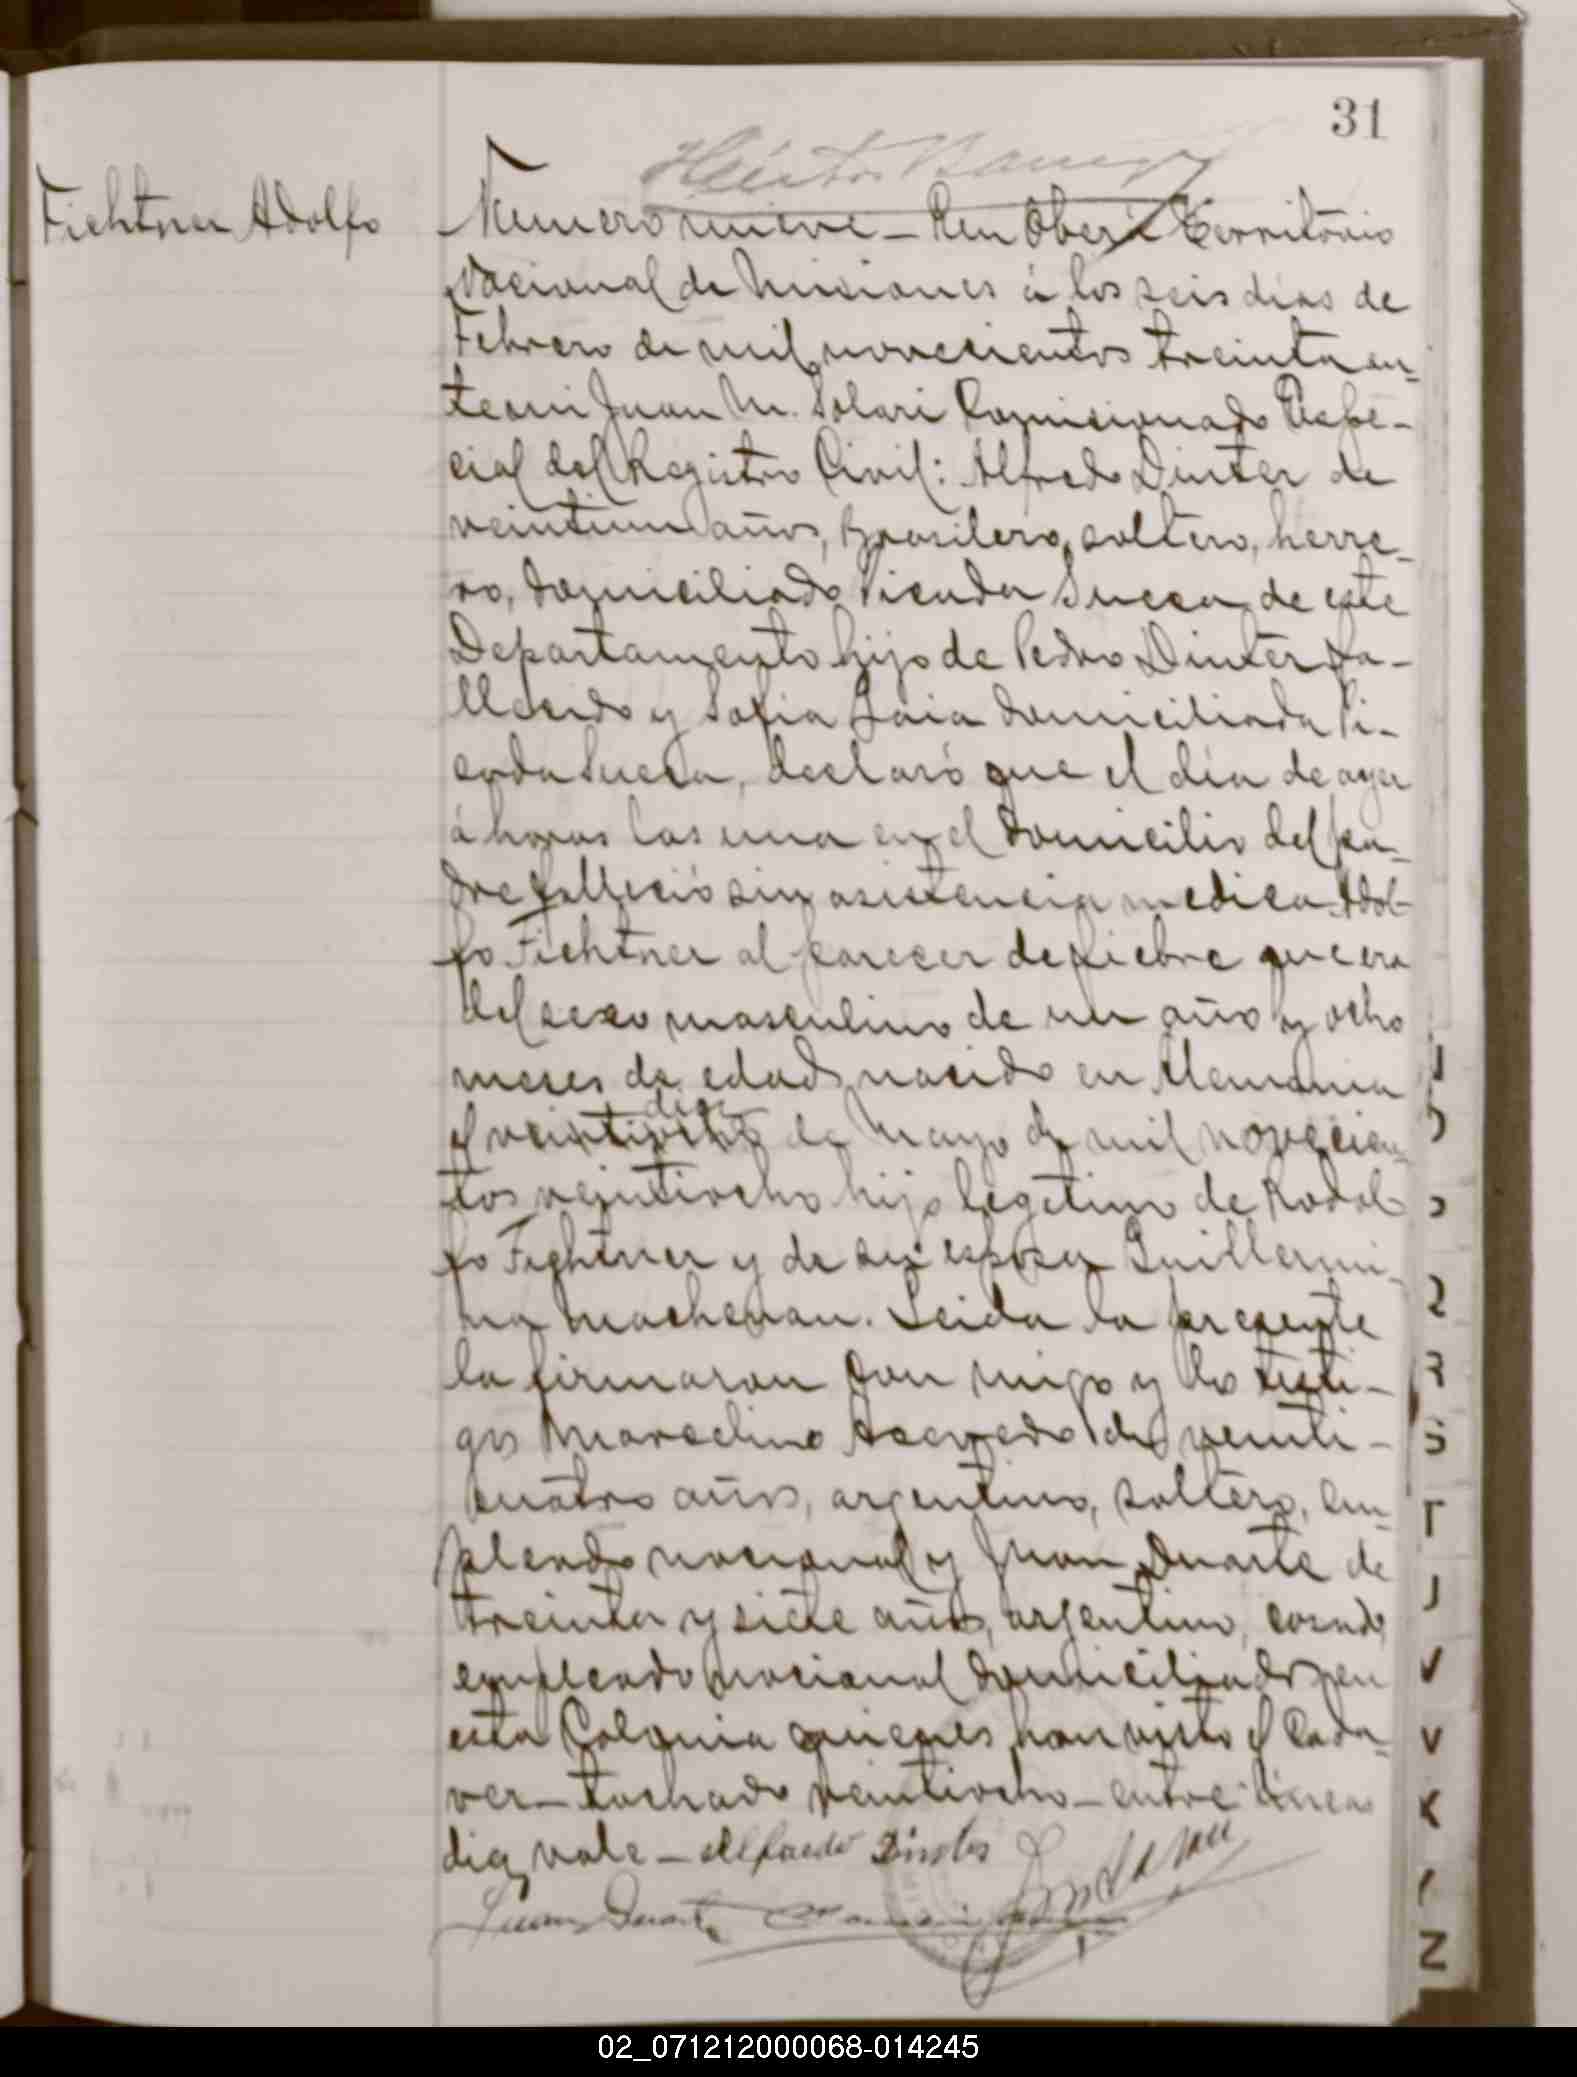 31
Héctor
Fichtner Adolfo
Numero nueve - En Oberá Territorio
Nacional de Misiones á los seis dias de
Febrero de mil novecientos treinta an-
te mi Juan M. Solari Comisionado Espe-
cial del Registro Civil: Alfredo Dinter de
veintiun años, Brasilero, soltero, herre-
ro, domiciliado Picada Sueca de este
Departamento hijo de Pedro Dinter fa-
llecido y Sofia Gaia domiciliada Pi-
cada Sueca, declaró que el día de ayer
á horas las una en el domicilio del pa-
dre falleció sin asistencia medica Adol-
fo Fichtner al parecer de fiebre que era
del sexo masculino de un año y ocho
meses de edad, nacido en Alemania
diez
el veintiocho de Mayo de mil novecien-
tos veintiocho hijo legitimo de Rodol-
fo Fightner y de su esposa Guillermi-
na Machenan. Leida la presente
la firmaron con migo y los testi-
gos Marcelino Acevedo de veinti-
cuatro años, argentino, soltero, em-
pleado nacional y Juan Duarte de
treinta y siete años, argentino, casado,
empleado nacional domiciliados en
esta Colonia quienes han visto el cada-
ver - tachado veintiocho - entre lineas
diez vale - Alfredo Dinter
Juan Duarte
02_071212000068-014245